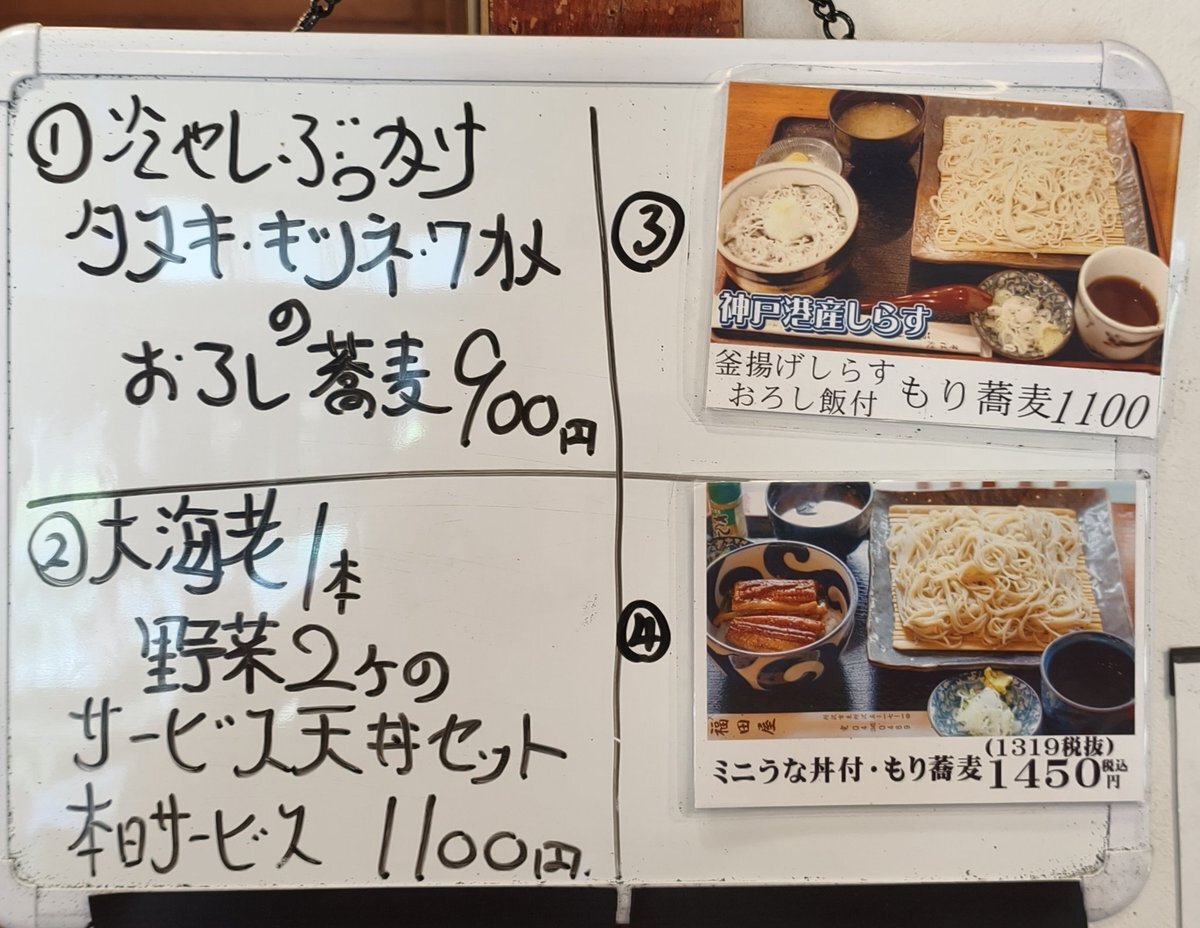 ① 冷やしぶっかけ
タヌキ・キツネ・ワカメ
の
おろし蕎麦 900円
② 大海老1本
野菜2ケの
サービス天丼セット
本日サービス 1100円
③
神戸港産しらす
釜揚げしらす
おろし飯付 もり蕎麦1100
④
福田屋
(1319税抜)
ミニうな丼付・もり蕎麦1450税込円